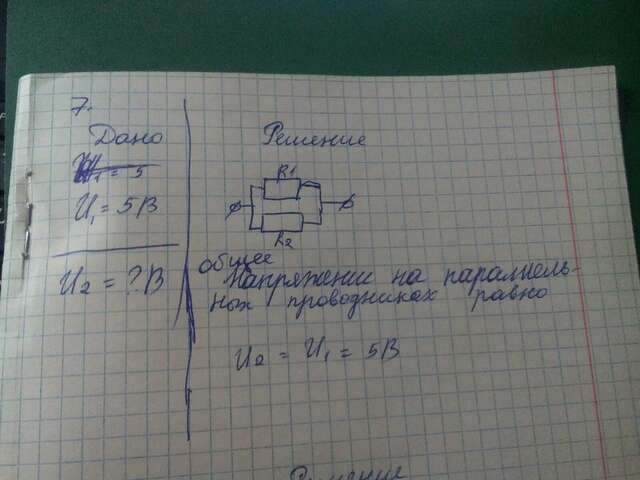 7.
Дано
U₁ = 5
U₁ = 5В
U₂ = ?В
Решение
R1
R2
общее
Напряжении на параллель-
ных проводниках равно
U₂ = U₁ = 5В
Решение